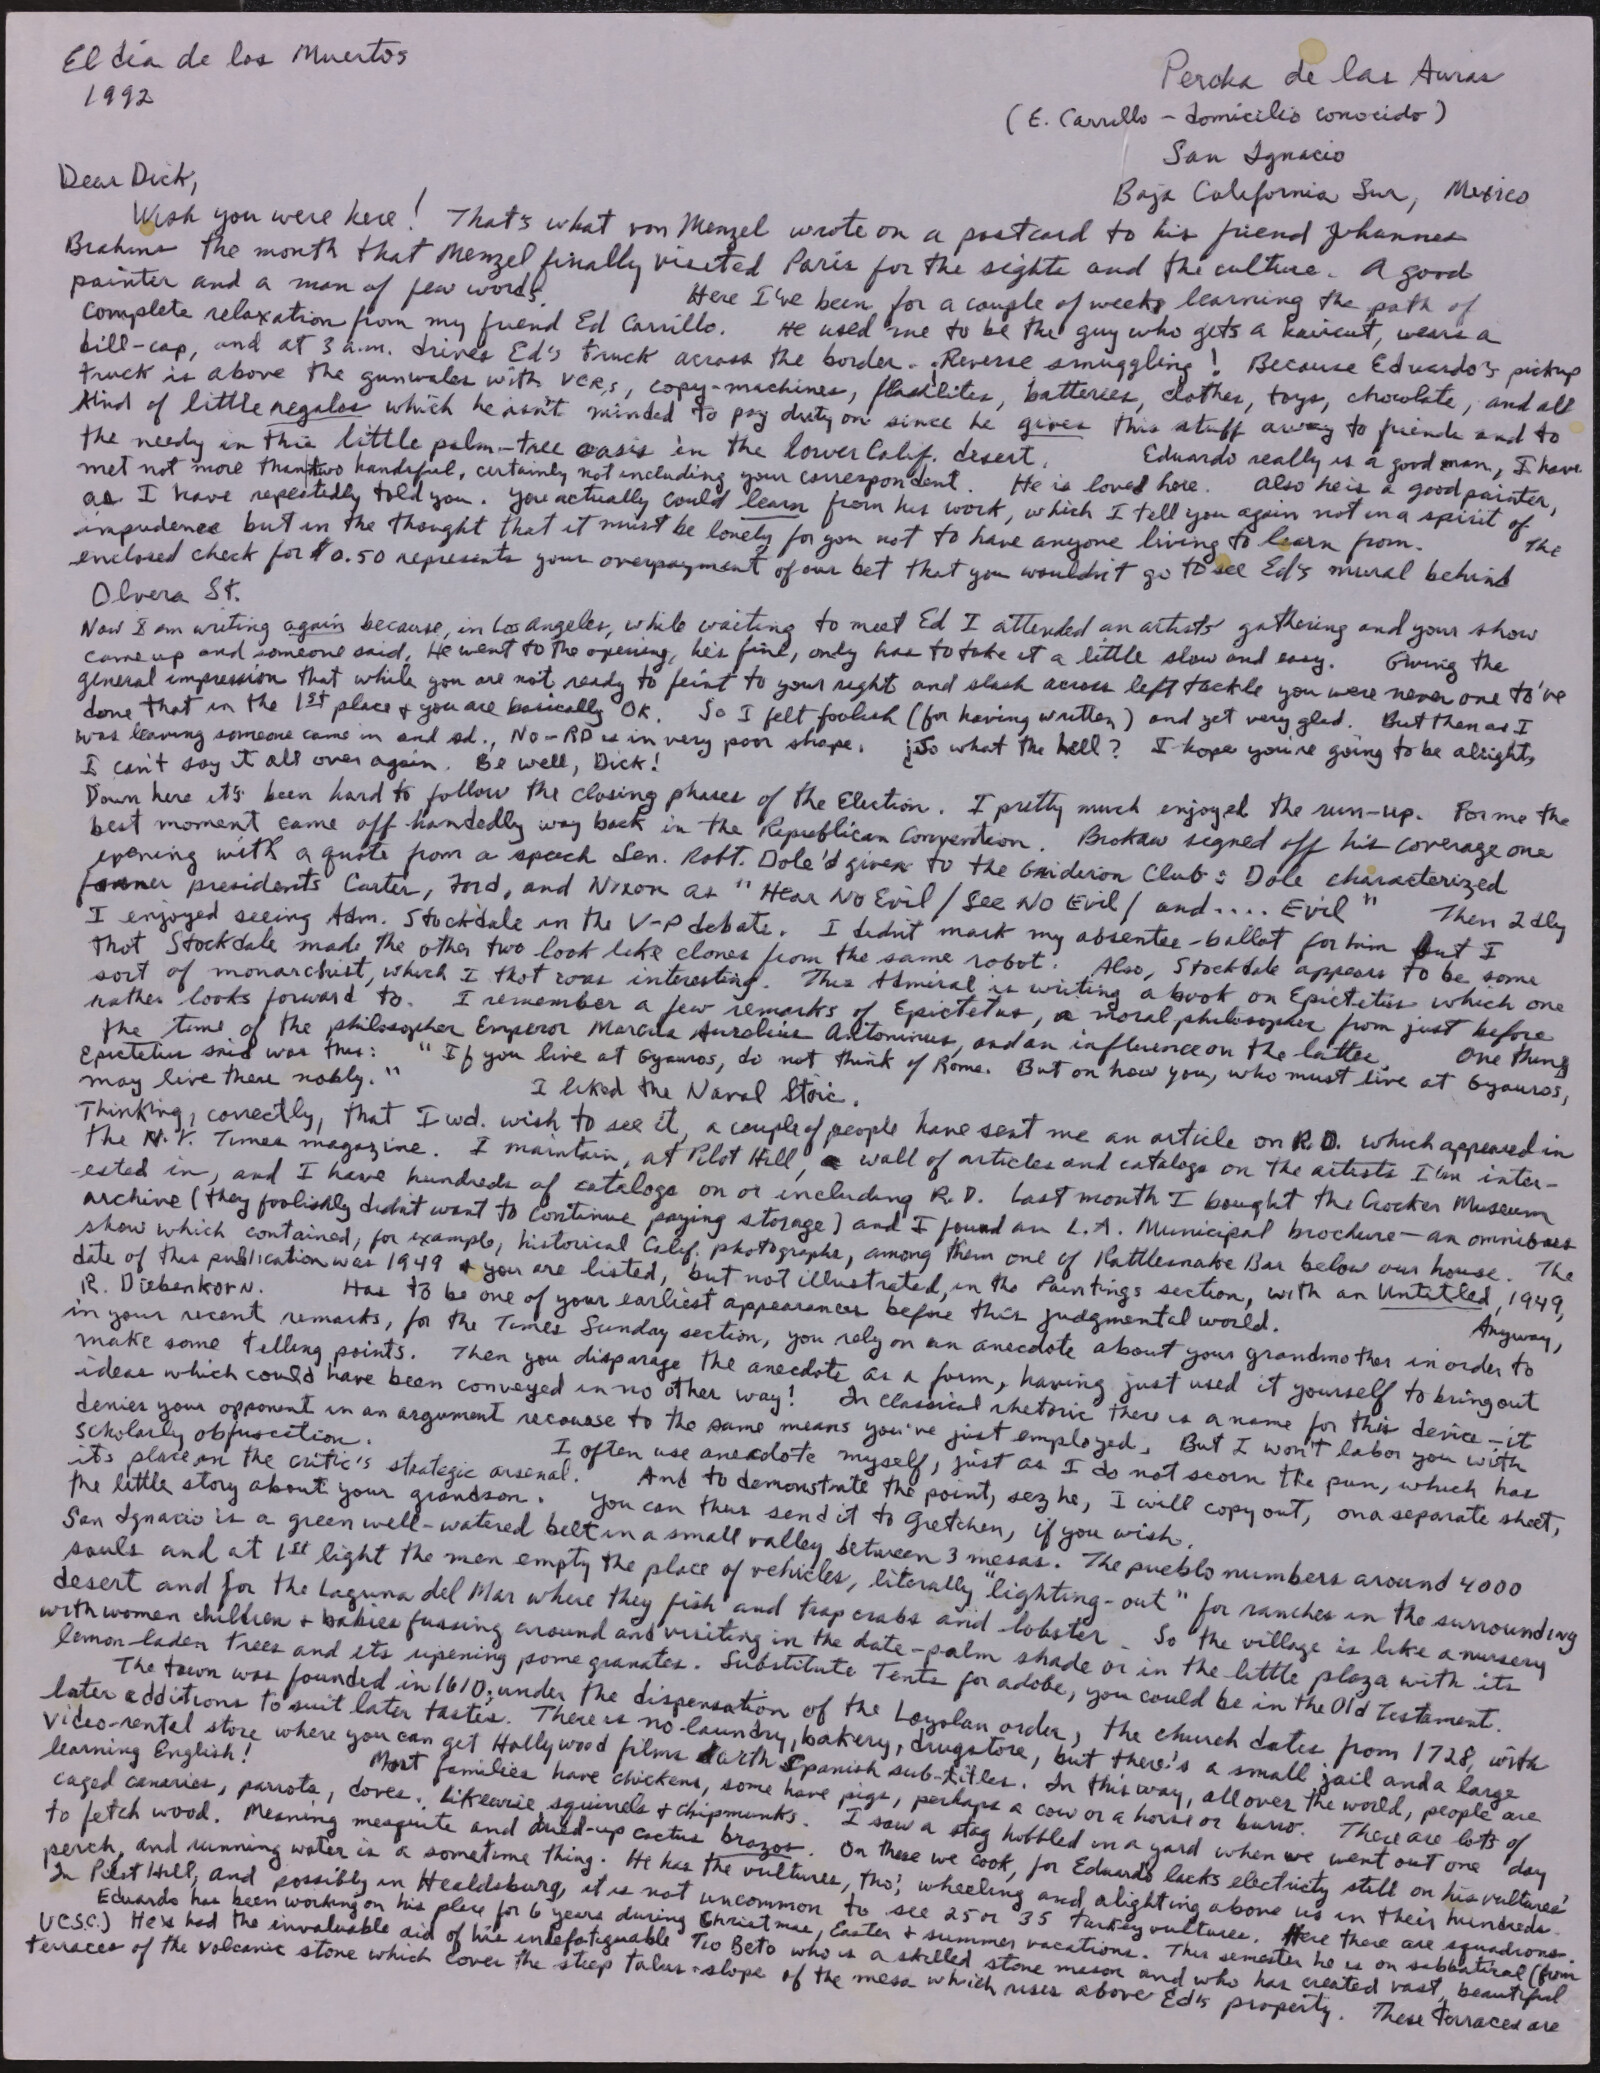 El día de los Muertos
1992
Percha de las Auras
(E. Carrillo - domicilio conocido)
San Ignacio
Baja California Sur, Mexico
Dear Dick,
Wish you were here! That's what von Menzel wrote on a postcard to his friend Johannes
Brahms the month that Menzel finally visited Paris for the sights and the culture. A good
painter and a man of few words. Here I've been for a couple of weeks learning the path of
complete relaxation from my friend Ed Carrillo. He used me to be the guy who gets a haircut, wears a
bill-cap, and at 3 a.m. drives Ed's truck across the border. ¡Reverse smuggling! Because Eduardo's pickup
truck is above the gunwales with VCRs, copy-machines, flashlites, batteries, clothes, toys, chocolate, and all
kind of little regalos which he isn't minded to pay duty on since he gives this stuff away to friends and to
the needy in this little palm-tree oasis in the lower Calif. desert. Eduardo really is a good man, I have
met not more than two handsful, certainly not including your correspondent. He is loved here. Also he is a good painter,
as I have repeatedly told you. You actually could learn from his work, which I tell you again not in a spirit of
impudence but in the thought that it must be lonely for you not to have anyone living to learn from. The
enclosed check for $0.50 represents your overpayment of our bet that you wouldn't go to see Ed's mural behind
Olvera St.
Now I am writing again because, in Los Angeles, while waiting to meet Ed I attended an artists' gathering and your show
came up and someone said, He went to the opening, he's fine, only has to take it a little slow and easy. Giving the
general impression that while you are not ready to feint to your right and slash across left tackle you were never one to've
done that in the 1st place & you are basically OK. So I felt foolish (for having written) and yet very glad. But then as I
was leaving someone came in and sd., No - RD is in very poor shape. ¿So what the hell? I hope you're going to be alright,
I can't say it all over again. Be well, Dick!
Down here it's been hard to follow the closing phases of the Election. I pretty much enjoyed the run-up. For me the
best moment came off-handedly way back in the Republican Convention. Brokaw signed off his coverage one
evening with a quote from a speech Sen. Robt. Dole'd given to the Gridiron Club: Dole characterized
former presidents Carter, Ford, and Nixon as "Hear No Evil / See No Evil / and .... Evil" Then 2dly
I enjoyed seeing Adm. Stockdale in the V-P debate. I didn't mark my absentee-ballot for him but I
thot Stockdale made the other two look like clones from the same robot. Also, Stockdale appears to be some
sort of monarchist, which I thot was interesting. This Admiral is writing a book on Epictetus which one
rather looks forward to. I remember a few remarks of Epictetus, a moral philosopher from just before
the time of the philosopher Emperor Marcus Aurelius Antoninus, and an influence on the latter. One thing
Epictetus said was this: "If you live at Gyauros, do not think of Rome. But on how you, who must live at Gyauros,
may live there nobly." I liked the Naval Stoic.
Thinking, correctly, that I wd. wish to see it, a couple of people have sent me an article on R.D. which appeared in
the N.Y. Times magazine. I maintain, at Pilot Hill, a wall of articles and catalogs on the artists I'm inter-
-ested in, and I have hundreds of catalogs on or including R.D. Last month I bought the Crocker Museum
archive (they foolishly didn't want to continue paying storage) and I found an L.A. Municipal brochure - an omnibus
show which contained, for example, historical Calif. photographs, among them one of Rattlesnake Bar below our house. The
date of this publication was 1949 & you are listed, but not illustrated, in the Paintings section, with an Untitled, 1949,
R. Diebenkorn. Has to be one of your earliest appearances before this judgmental world. Anyway,
in your recent remarks, for the Times Sunday section, you rely on an anecdote about your grandmother in order to
make some telling points. Then you disparage the anecdote as a form, having just used it yourself to bring out
ideas which could have been conveyed in no other way! In classical rhetoric there is a name for this device - it
denies your opponent in an argument recourse to the same means you've just employed. But I won't labor you with
scholarly obfuscation. I often use anecdote myself, just as I do not scorn the pun, which has
its place in the critic's strategic arsenal. And to demonstrate the point, sez he, I will copy out, on a separate sheet,
the little story about your grandson. You can thus send it to Gretchen, if you wish.
San Ignacio is a green well-watered belt in a small valley between 3 mesas. The pueblo numbers around 4000
souls and at 1st light the men empty the place of vehicles, literally "lighting-out" for ranches in the surrounding
desert and for the Laguna del Mar where they fish and trap crabs and lobster. So the village is like a nursery
with women children & babies fussing around and visiting in the date-palm shade or in the little plaza with its
lemon-laden trees and its ripening pomegranates. Substitute Tents for adobe, you could be in the Old Testament.
The town was founded in 1610, under the dispensation of the Loyolan order, the church dates from 1728, with
later additions to suit later tastes. There is no laundry, bakery, drugstore, but there's a small jail and a large
video-rental store where you can get Hollywood films with Spanish sub-titles. In this way, all over the world, people are
learning English! Most families have chickens, some have pigs, perhaps a cow or a horse or burro. There are lots of
caged canaries, parrots, doves. Likewise squirrels & chipmunks. I saw a stag hobbled in a yard when we went out one day
to fetch wood. Meaning mesquite and dried-up cactus brazos. On these we cook, for Eduardo lacks electricity still on his vultures'
perch, and running water is a sometime thing. He has the vultures, tho', wheeling and alighting above us in their hundreds.
In Pilot Hill, and possibly in Healdsburg, it is not uncommon to see 25 or 35 turkey vultures. Here there are squadrons.
Eduardo has been working on his place for 6 years during Christmas, Easter & summer vacations. This semester he is on sabbatical (from
UCSC.) He's had the invaluable aid of his indefatiguable Tio Beto who is a skilled stone mason and who has created vast, beautiful
terraces of the volcanic stone which cover the steep talus-slope of the mesa which rises above Ed's property. These terraces are